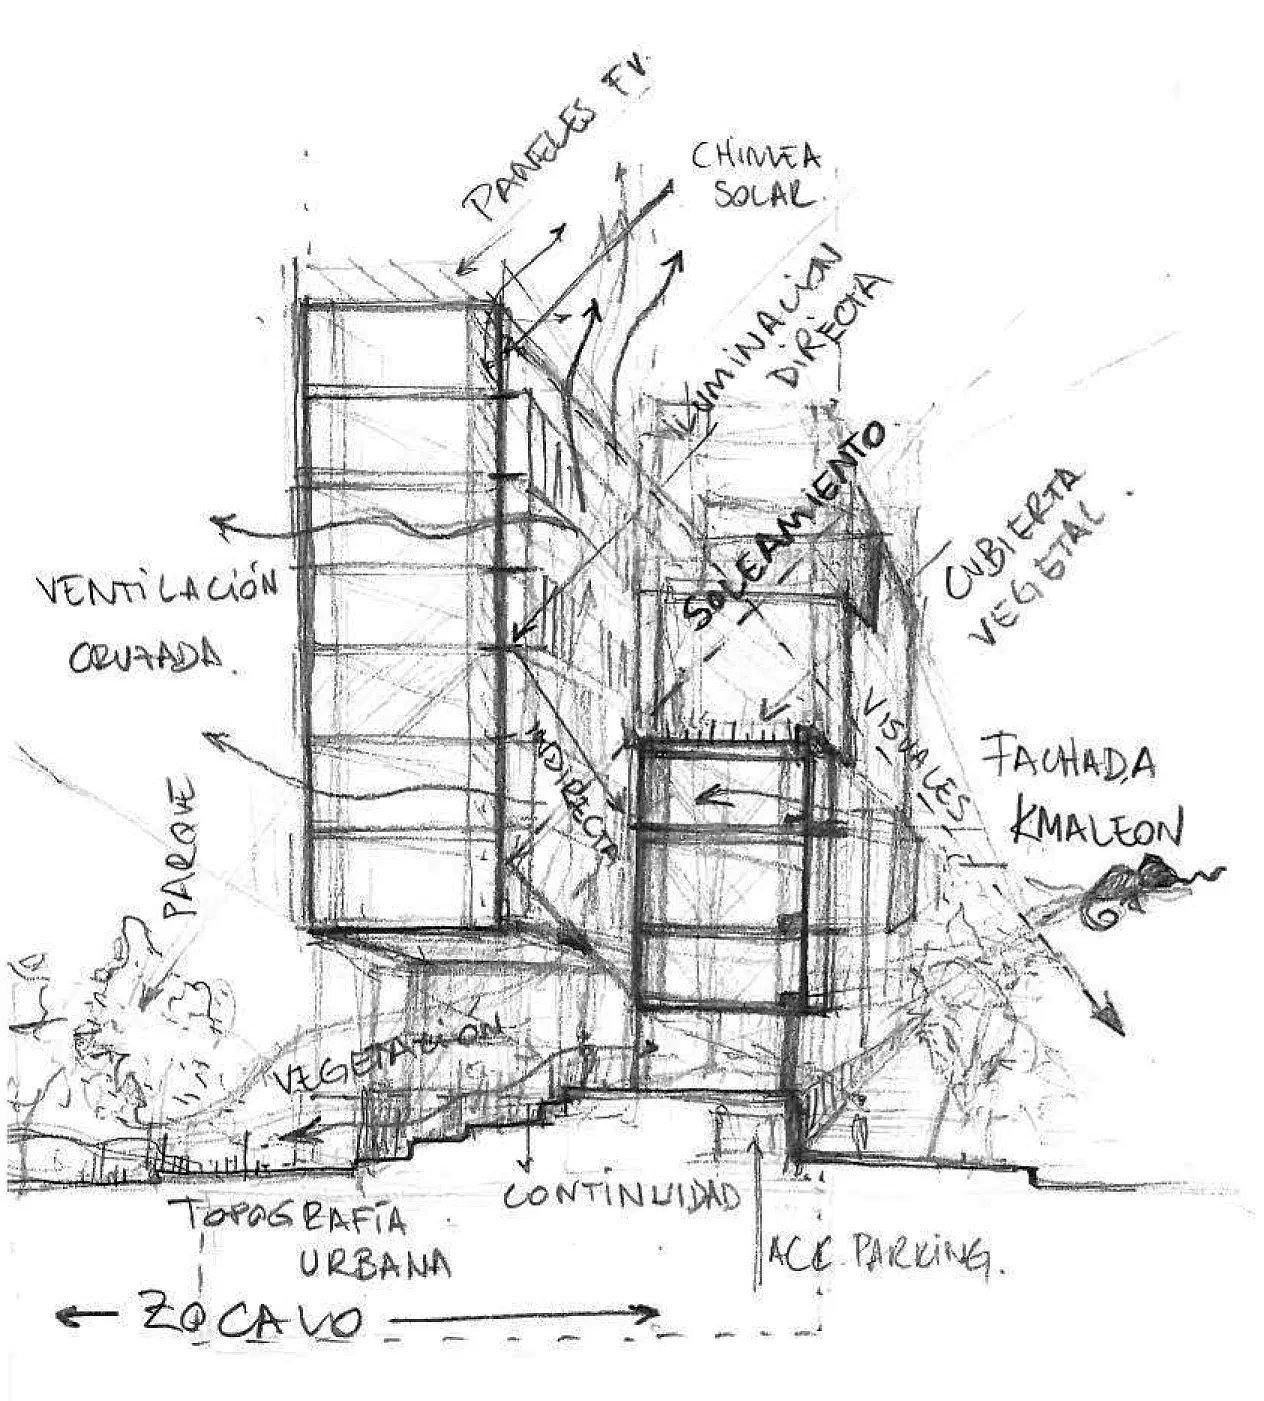 PANELES FV.
CHIMEA
SOLAR.
ILUMINACIÓN
DIRECTA
SOLEAMIENTO
CUBIERTA
VEGETAL.
VENTILACIÓN
CRUZADA.
INDIRECTA
VISUALES
FACHADA
KMALEON
PARQUE
VEGETACIÓN
CONTINUIDAD
TOPOGRAFÍA
URBANA
ACC. PARKING.
ZOCALO